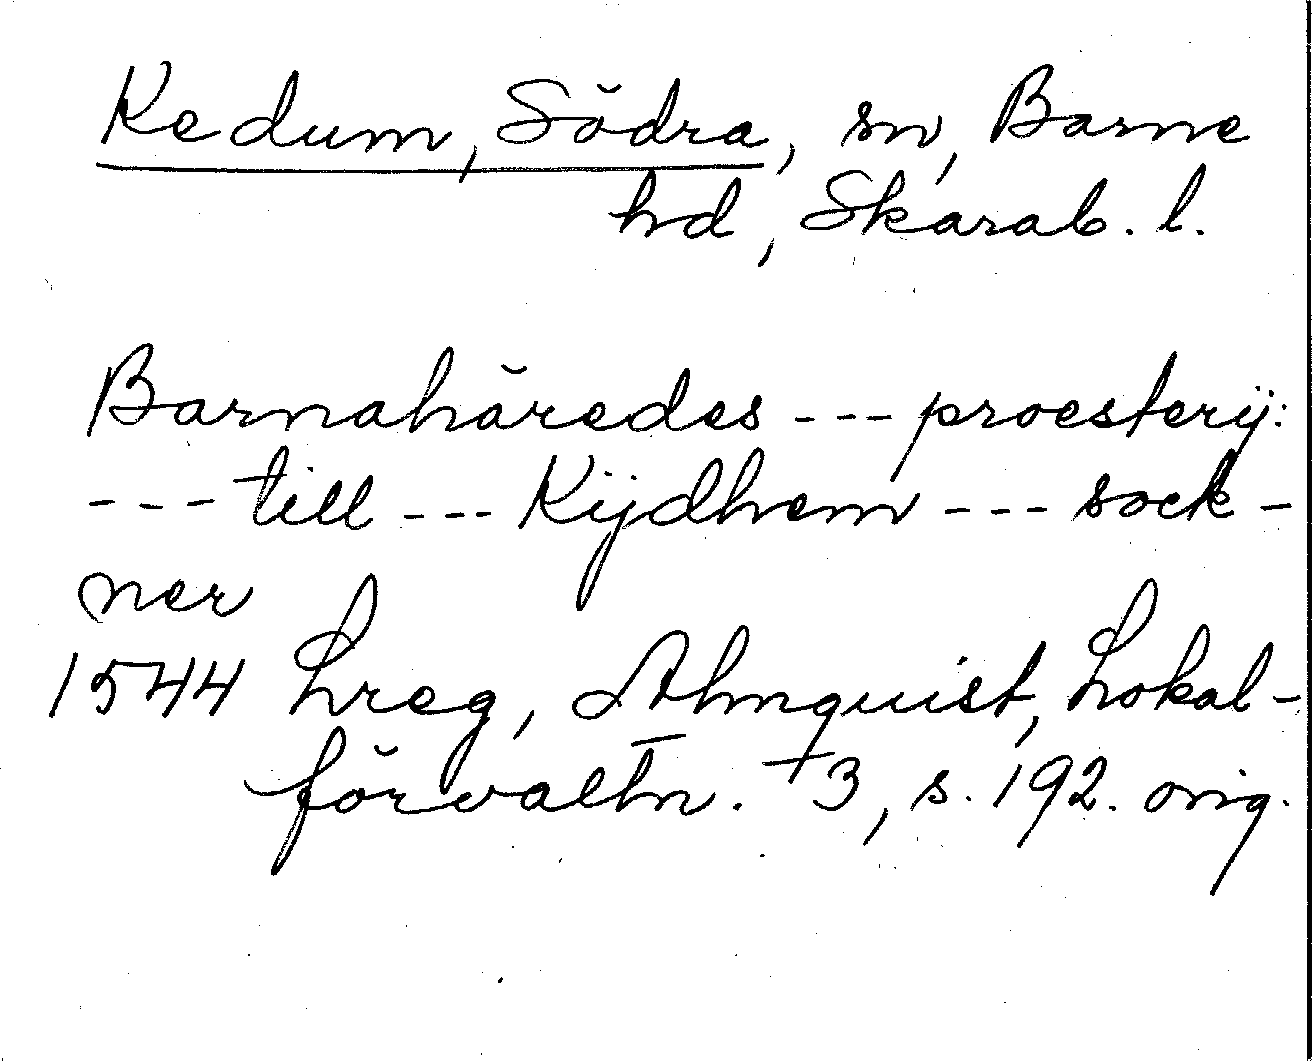 Kedum, Södra, sn, Barne
hd, Skarab. l.
Barnahäredes --- proesterij:
--- till --- Kijdhem --- sock-
ner
1544 Lreg, Almquist, Lokal-
förvaltn. †3, s. 192. orig.